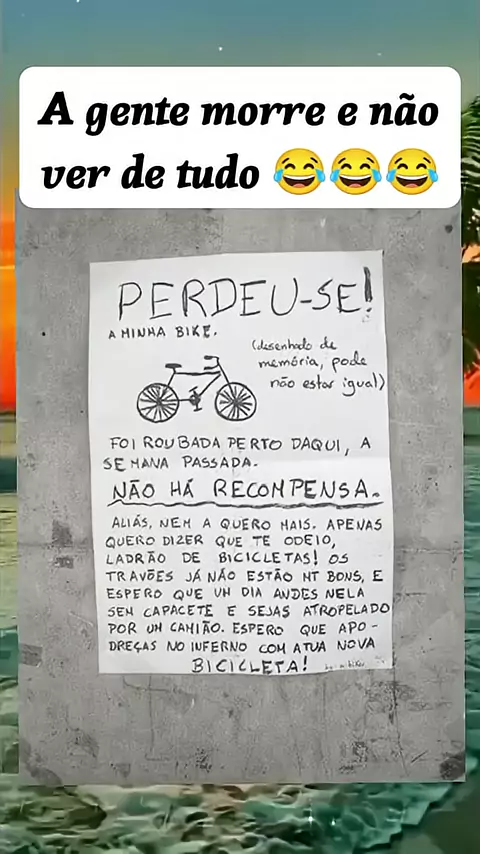 A gente morre e não
ver de tudo 😂😂😂
PERDEU-SE!
A MINHA BIKE.
(desenhado de
memória, pode
não estar igual)
FOI ROUBADA PERTO DAQUI, A
SEMANA PASSADA.
NÃO HÁ RECOMPENSA.
ALIÁS, NEM A QUERO MAIS. APENAS
QUERO DIZER QUE TE ODEIO,
LADRÃO DE BICICLETAS! OS
TRAVÕES JÁ NÃO ESTÃO MT BONS, E
ESPERO QUE UM DIA ANDES NELA
SEM CAPACETE E SEJAS ATROPELADO
POR UM CAMIÃO. ESPERO QUE APO-
DREÇAS NO INFERNO COM A TUA NOVA
BICICLETA!